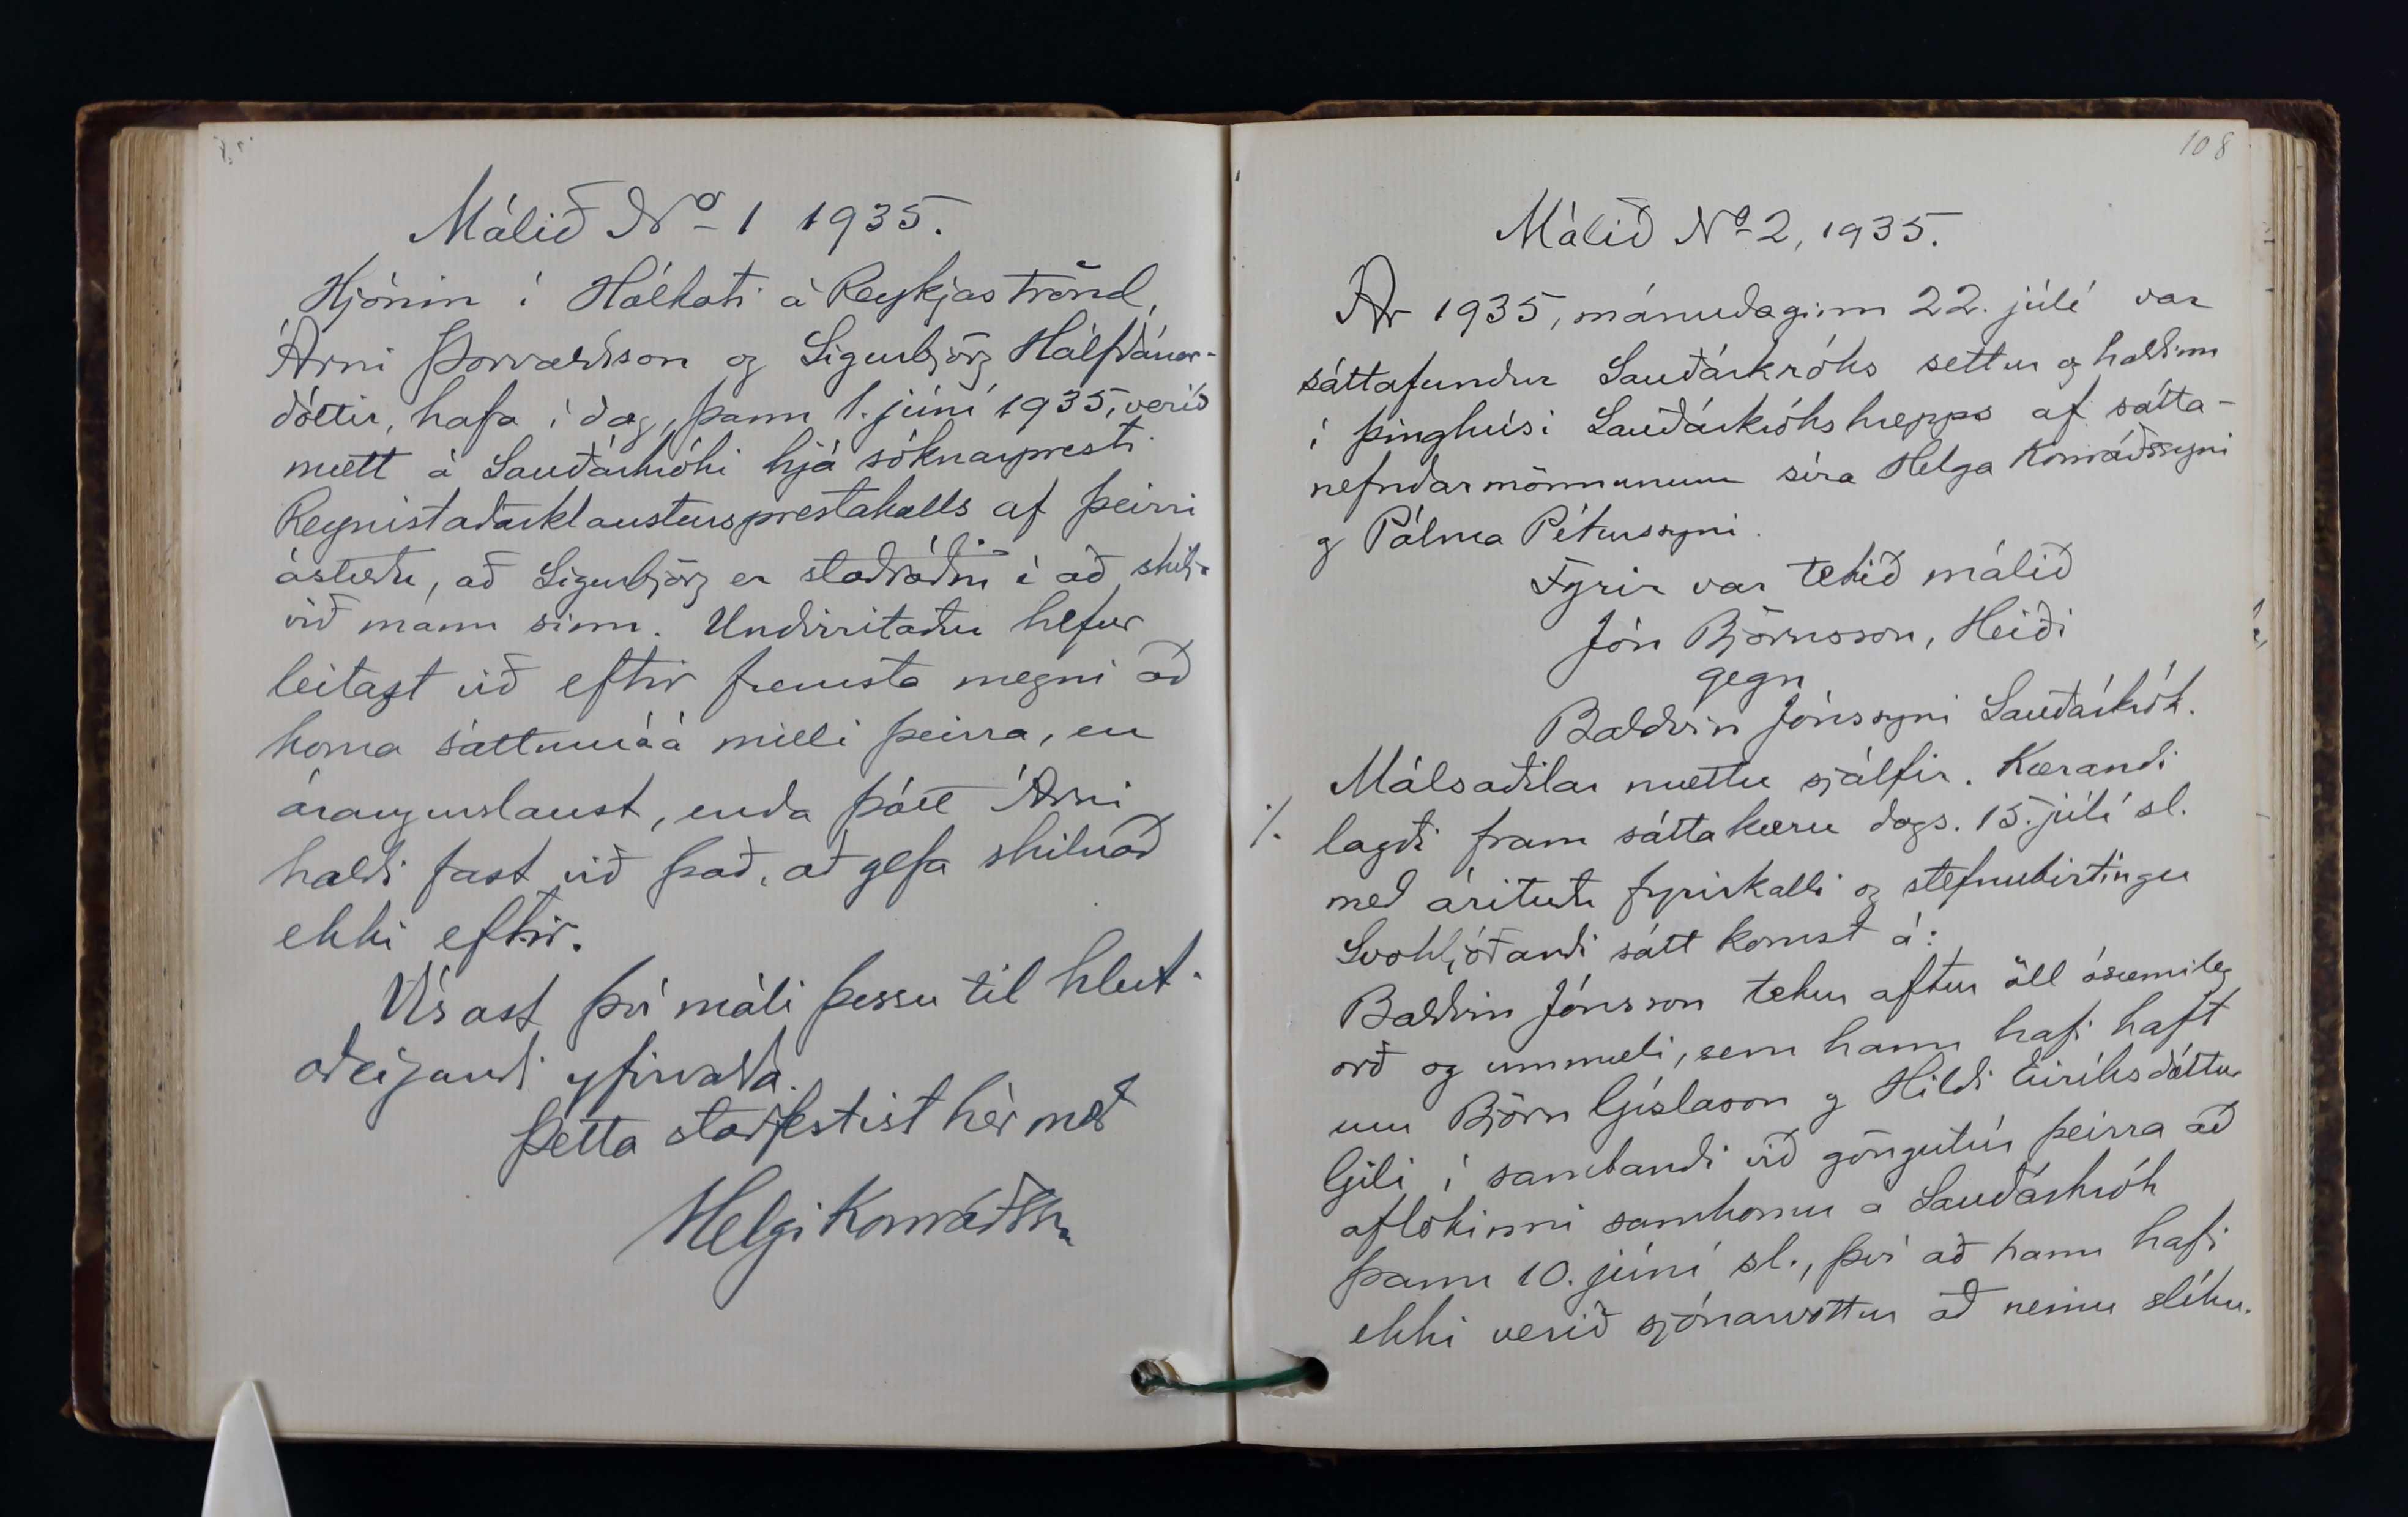 Málið No 1 1935.
Hjónin í Hólkoti á Reykjaströnd,
Árni Þorvaldsson og Sigurbjörg Hálfdánar-
dóttir, hafa í dag, þann 1. júní 1935, verið
mætt á Sauðárkróki hjá sóknarpresti
Reynistaðarklaustursprestakalls af þeirri
ástæðu, að Sigurbjörg er staðráðin í að skilja
við mann sinn. Undirritaður hefur
leitazt við eftir fremsta megni að
koma sáttum á á milli þeirra, en
árangurslaust, enda þótt Árni
haldi fast við það, að gefa skilnað
ekki eftir.
Vísast því máli þessu til hlut-
aðeigandi yfirvalda.
Þetta staðfestist hér með
Helgi Konráðsson
108
Málið No 2, 1935.
Ár 1935, mánudaginn 22. júlí var
sáttafundur Sauðárkróks settur og haldinn
í þinghúsi Sauðárkrókshrepps af sátta-
nefndarmönnunum síra Helga Konráðssyni
og Pálma Péturssyni.
Fyrir var tekið málið
Jón Björnsson, Heiði
gegn
Baldvin Jónssyni Sauðárkrók.
Málsaðilar mættu sjálfir. Kærandi
./. lagði fram sáttakæru dags. 15. júlí sl.
með árituðu fyrirkalli og stefnubirtingu
Svohljóðandi sátt komst á:
Baldvin Jónsson tekur aftur öll ósæmileg
orð og ummæli, sem hann hafi haft
um Björn Gíslason og Hildi Eiríksdóttur
Gili í sambandi við göngutúr þeirra að
aflokinni samkomu a Sauðárkrók
þann 10. júní sl., því að hann hafi
ekki verið sjónarvottur að neinu slíku.